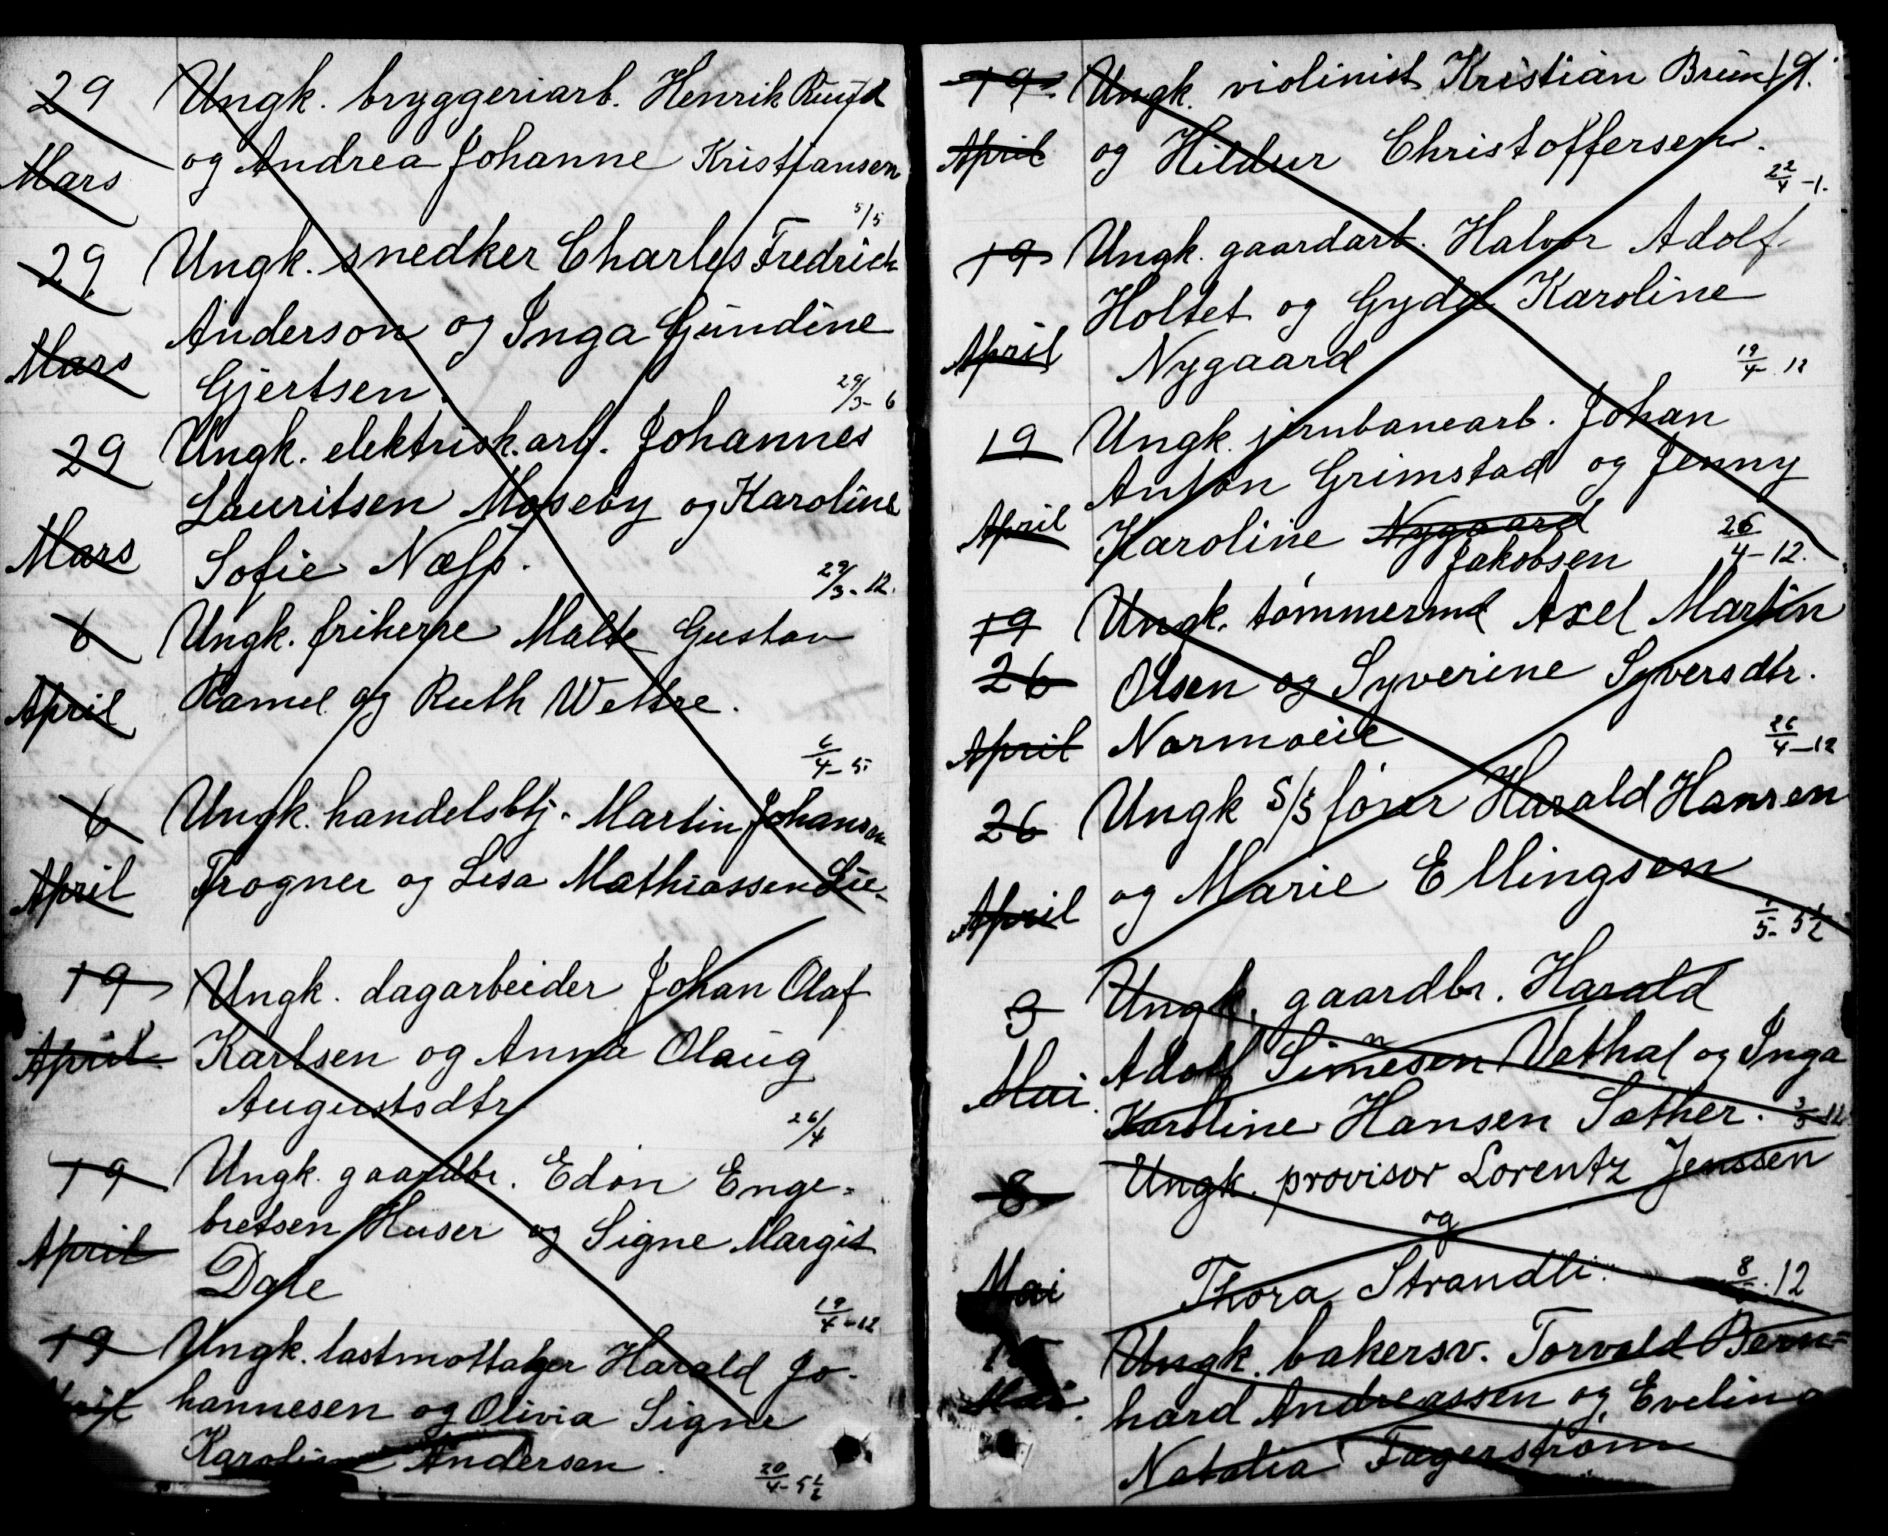 29 Ungk. bryggeriarb. Henrik Ruud
Mars og Andrea Johanne Kristiansen
5/5
29 Ungk. snedker Charles Fredrick
Anderson og Inga Gundine
Mars Gjertsen. 29/3-6
29 Ungk. elektrisk.arb. Johannes
Lauritsen Moseby og Karoline
Mars Sofie Næss. 29/3-12.
6 Ungk. friherre Malte Gustav
April Ramel og Ruth Wettre.
6/4-5
6 Ungk. handelsbtj. Martin Johansen
April Trogner og Lisa Mathiassen Lie-
19 Ungk. dagarbeider Johan Olaf
April Karlsen og Anna Olaug
Augustsdtr 26/4
19 Ungk. gaardbr. Edon Enge=
April bretsen Huser og Signe Margit
Dale
19/4-12
19 Ungk. lastmottager Harald Jo-
April hannesen og Olivia Signe
Karoline Andersen. 20/4-5 1/2
19. Ungk. violinist Kristian Brun 19.
April og Hildur Christoffersen.
22/4-1.
19 Ungk. gaardarb. Halvor Adolf
Holtet og Gyda Karoline
April Nygaard 19/4 12
19 Ungk. jernbanearb. Johan
Anton Grimstad og Jenny
April Karoline Nygaard 26/4-12.
Jakobsen
19 Ungk. tømmermd Axel Martin
26 Olsen og Syverine Syversdtr.
April Normoeie 26/4-12
26 Ungk S/S fører Harald Hansen
April og Marie Ellingsen
1/5-5 1/2
3 Ungk. gaardbr. Harald
Mai. Adolf Simensen Vethal og Inga
Karoline Hansen Sæther. 3/5 12
8 Ungk. provisor Lorentz Jenssen
og
Mai Thora Strandli. 8/5.12
Ungk. bakersv. Torvald Bern=
Mai. hard Andreassen og Evelina
Natalia Fagerstrøm